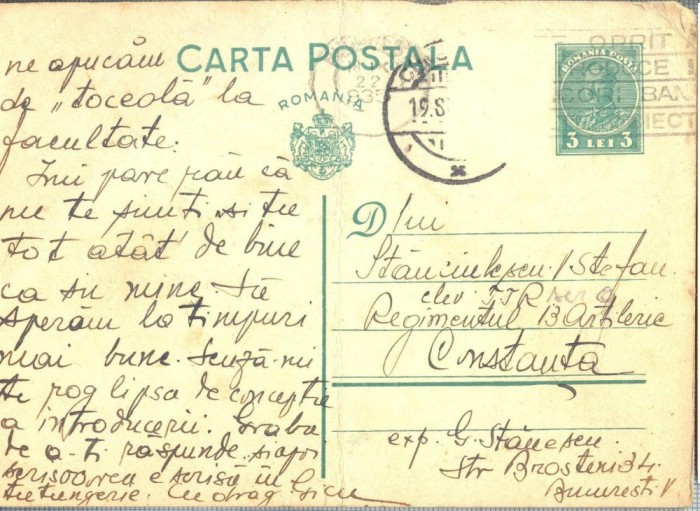 CARTA POSTALA
ROMANIA
ROMANIA POSTA
3 LEI 3
22
935
19.S
OPRIT
ORICE
BAN
ne apucăm
de „toceală" la
facultate.
Îmi pare rău că
nu te simți și tu
tot atât de bine
ca și mine. Să
sperăm la timpuri
mai bune. Scuză-mi
te rog lipsa de concepție
a introducerii. Graba
de a-ți răspunde și apoi
scrisoarea e scrisă în
Cu drag Gicu
Dlui
Stănciulescu I Ștefan
elev TTR
Regimentul 13 Artilerie
Constanța
exp. G. Stănescu
Str Broșteni 34.
București V.